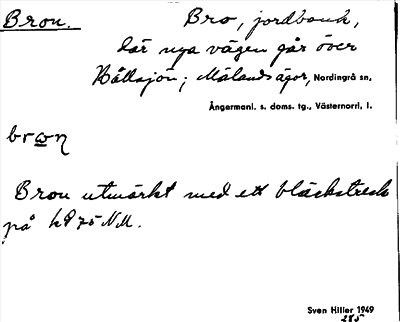 Bron.
Bro, jordbank,
där nya vägen går över
Bållsjön; Mälands ägor, Nordingrå sn,
Ångermanl. s. doms. tg., Västernorrl. l.
brωn
Bron utmärkt med ett bläckstreck
på kp 75 NM.
Sven Hiller 1949
285